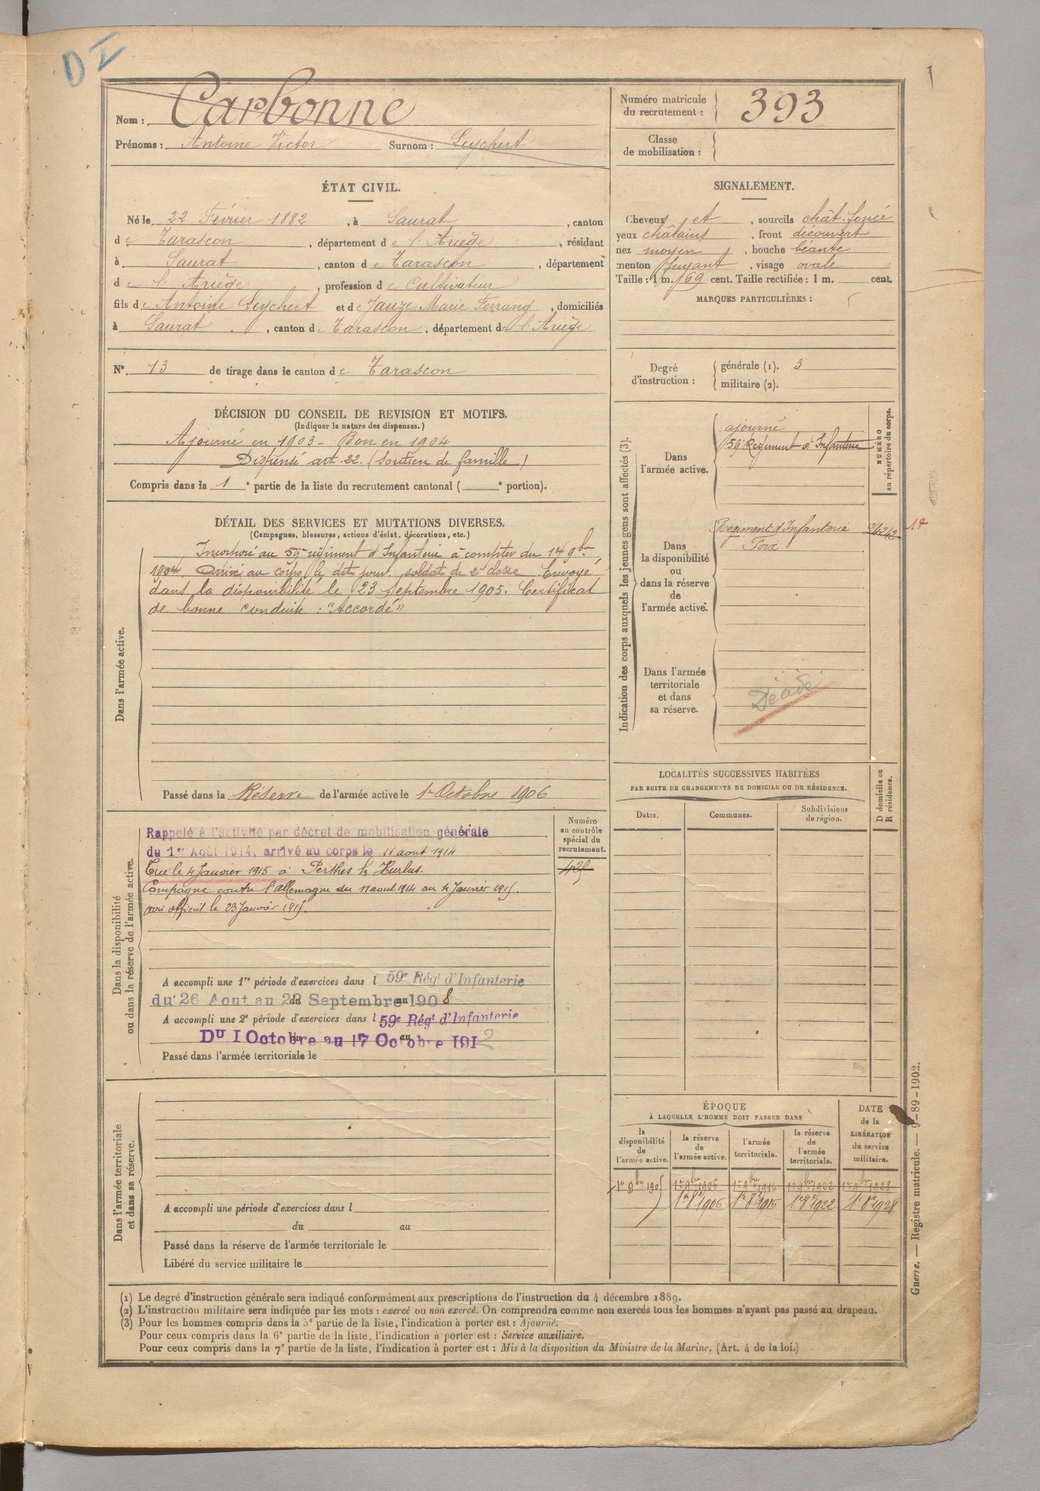 D I
1
Nom : Carbonne
Prénoms : Antoine Victor Surnom : Seychert
Numéro matricule du recrutement : 393
Classe de mobilisation :
ÉTAT CIVIL.
Né le 22 Février 1882, à Saurat, canton
de Tarascon, département de l'Ariège, résidant
à Saurat, canton de Tarascon, département
de l'Ariège, profession de Cultivateur
fils de Antoine Seychert et de Jauze Marie Ferrang, domiciliés
à Saurat, canton de Tarascon, département de l'Ariège
N° 13 de tirage dans le canton de Tarascon
SIGNALEMENT.
Cheveux et, sourcils chât. foncé
yeux châtains, front découvert
nez moyen, bouche béante
menton fuyant, visage ovale
Taille : 1 m. 69 cent. Taille rectifiée : 1 m. cent.
MARQUES PARTICULIÈRES :
Degré d'instruction :
générale (1). 3
militaire (2).
DÉCISION DU CONSEIL DE REVISION ET MOTIFS.
(Indiquer la nature des dispenses.)
Ajourné en 1903 - Bon en 1904
Dispensé art. 22. (Soutien de famille)
Compris dans la 1e partie de la liste du recrutement cantonal ( e portion).
DÉTAIL DES SERVICES ET MUTATIONS DIVERSES.
(Campagnes, blessures, actions d'éclat, décorations, etc.)
Dans l'armée active.
Incorporé au 59e régiment d'Infanterie à compter du 14 9bre
1904. Arrivé au corps le dit jour, soldat de 2e classe. Envoyé
dans la disponibilité le 23 Septembre 1905. Certificat
de bonne conduite : "Accordé"
Passé dans la Réserve de l'armée active le 1er Octobre 1906
Indication des corps auxquels les jeunes gens sont affectés (3).
NUMÉRO au répertoire du corps.
Dans l'armée active.
ajourné
59e Régiment d'Infanterie
Dans la disponibilité ou dans la réserve de l'armée active.
Régiment d'Infanterie
Foix
Dans l'armée territoriale et dans sa réserve.
Décédé
LOCALITÉS SUCCESSIVES HABITÉES
PAR SUITE DE CHANGEMENTS DE DOMICILE OU DE RÉSIDENCE.
Dates.
Communes.
Subdivisions de région.
D domicile ou R résidence.
Dans la disponibilité ou dans la réserve de l'armée active.
Numéro au contrôle spécial du recrutement.
Rappelé à l'activité par décret de mobilisation générale
du 1er Août 1914, arrivé au corps le 11 aout 1914
Tué le 4 Janvier 1915 à Perthes les Hurlus.
Campagne contre l'allemagne du 11 aout 1914 au 4 Janvier 1915.
avis officiel le 23 Janvier 1915.
A accompli une 1re période d'exercices dans l 59e Régt d'Infanterie
du 26 Aout au 22 Septembre 1908
A accompli une 2e période d'exercices dans l 59e Régt d'Infanterie
Du 1 Octobre au 17 Octobre 1912
Passé dans l'armée territoriale le
Dans l'armée territoriale et dans sa réserve.
A accompli une période d'exercices dans l
du au
Passé dans la réserve de l'armée territoriale le
Libéré du service militaire le
ÉPOQUE
À LAQUELLE L'HOMME DOIT PASSER DANS
la disponibilité de l'armée active.
la réserve de l'armée active.
l'armée territoriale.
la réserve de l'armée territoriale.
DATE de la LIBÉRATION du service militaire.
1er 8bre 1906
1er 8bre 1922
1er 8bre 1928
(1) Le degré d'instruction générale sera indiqué conformément aux prescriptions de l'instruction du 4 décembre 1889.
(2) L'instruction militaire sera indiquée par les mots : exercé ou non exercé. On comprendra comme non exercés tous les hommes n'ayant pas passé au drapeau.
(3) Pour les hommes compris dans la 5e partie de la liste, l'indication à porter est : Ajourné.
Pour ceux compris dans la 6e partie de la liste, l'indication à porter est : Service auxiliaire.
Pour ceux compris dans la 7e partie de la liste, l'indication à porter est : Mis à la disposition du Ministre de la Marine. (Art. 4 de la loi.)
Guerre. — Registre matricule. — 9-89-1902.